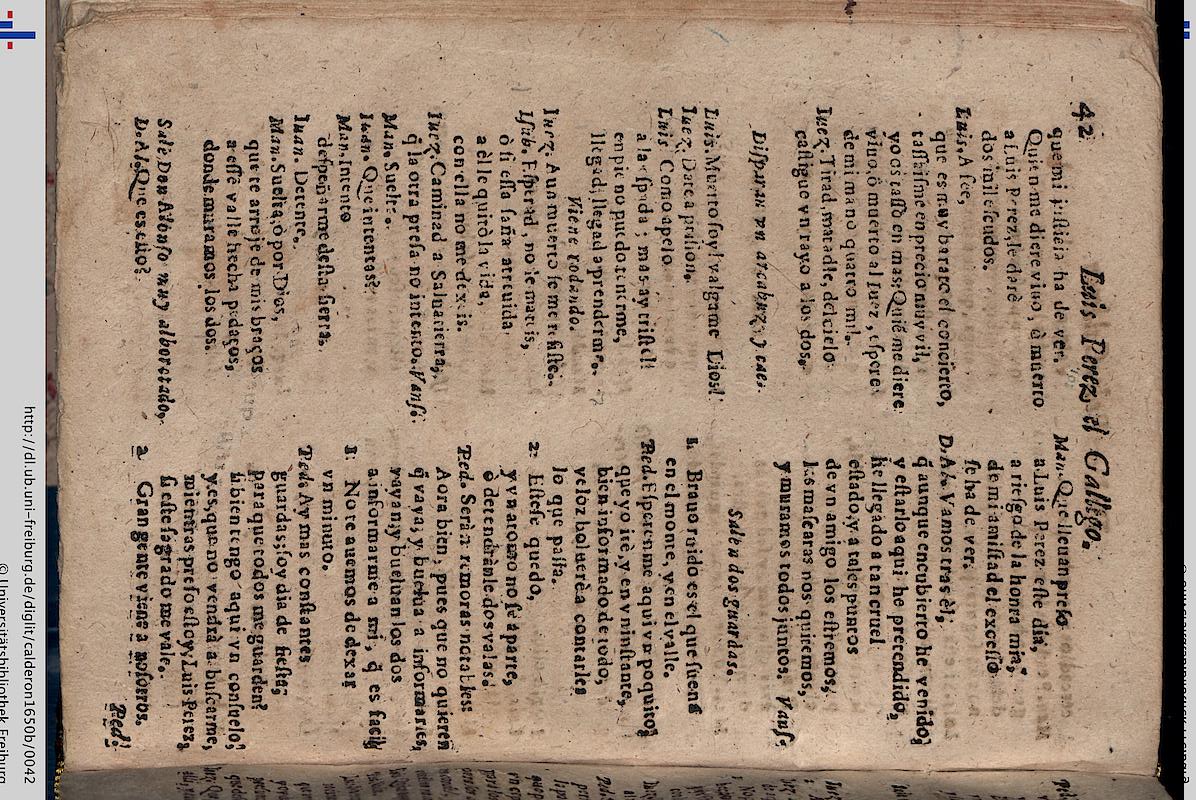 42
Luis Perez, el Gallego.
que mi justicia ha de ver.
Quien me diere viuo, ò muerto
a Luis Perez, le darè
dos mil escudos.
Luis. A fee,
que es muy barato el concierto,
tassaisme en precio muy vil,
yo os tasso en mas: Quiē me diere
viuo, ò muerto al Iuez, espere
de mi mano quatro mil.
Iuez. Tirad, matadle, del cielo
castigue vn rayo a los dos.
Disparan vn arcabuz, y cae.
Luis. Muerto soy! valgame Dios!
Iuez. Date a prision.
Luis Como apelo
a la espada; mas ay triste!
en pie no puedo tenerme,
llegad, llegad a prenderme.
Viene rodando.
Iuez. Aun muerto se me resiste.
Isab. Esperad, no le mateis,
ò si essa saña atreuida
a èl le quitò la vida,
con ella no me dexeis.
Iuez. Caminad a Saluatierra,
q̃ la otra presa no intento. Vanse.
Man. Suelte.
Iuan. Que intentas?
Man. Intento
despeñarme desta sierra.
Iuan. Detente.
Man. Suelta, ò por Dios,
que te arroje de mis braços
a esse valle hecha pedaços,
donde muramos los dos.
Sale Don Alonso muy alborotado.
D. Al. Que es esto?
Man. Que lleuan preso
a Luis Perez este dia,
a riesgo de la honra mia,
de mi amistad el excesso
se ha de ver.
D. Al. Vamos tras èl;
q̃ aunque encubierto he venido,
y estarlo aqui he pretendido,
he llegado a tan cruel
estado, y a tales puntos
de vn amigo los estremos,
las mascaras nos quitemos,
y muramos todos juntos. Vans.
Salen dos guardas.
1. Brauo ruido es el que suena
en el monte, y en el valle.
Ped. Esperenme aqui vn poquito,
que yo irè, y en vn instante,
bien informado de todo,
veloz boluerè a contarles
lo que passa.
2. Estese quedo,
y vn atomo no se aparte,
ò detendranle dos valas.
Ped. Seràn remoras notables:
Aora bien, pues que no quieren
q̃ vaya, y buelua a informarles,
vayan, y bueluan los dos
a informarme a mi, q̃ es facil.
1. No te auemos de dexar
vn minuto.
Ped. Ay mas constantes
guardas; soy dia de fiesta,
para que todos me guarden?
si bien tengo aqui vn consuelo,
y es, que no vendrà a buscarme,
mientras preso estoy, Luis Perez,
si este sagrado me vale.
2. Gran gente viene a nosotros.
Ped.
http://dl.ub.uni-freiburg.de/diglit/calderon1650b/0042
© Universitätsbibliothek Freiburg